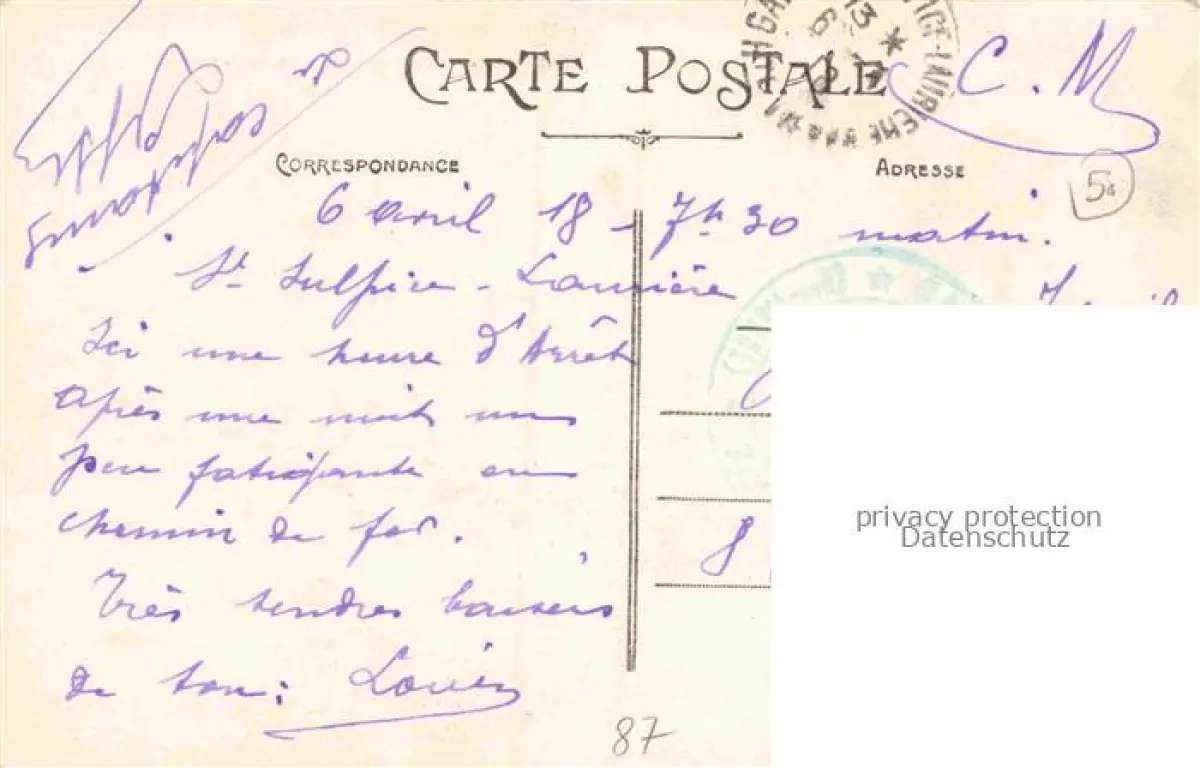 CARTE POSTALE
C. M
CORRESPONDANCE
ADRESSE
50
6 avril 18 - 7h 30 matin.
St Sulpice - Laurière
Ici une heure d'Arrêt
Après une nuit un
peu fatigante en
chemin de fer.
Très tendres baisers
de ton: Louis
8
privacy protection
Datenschutz
87